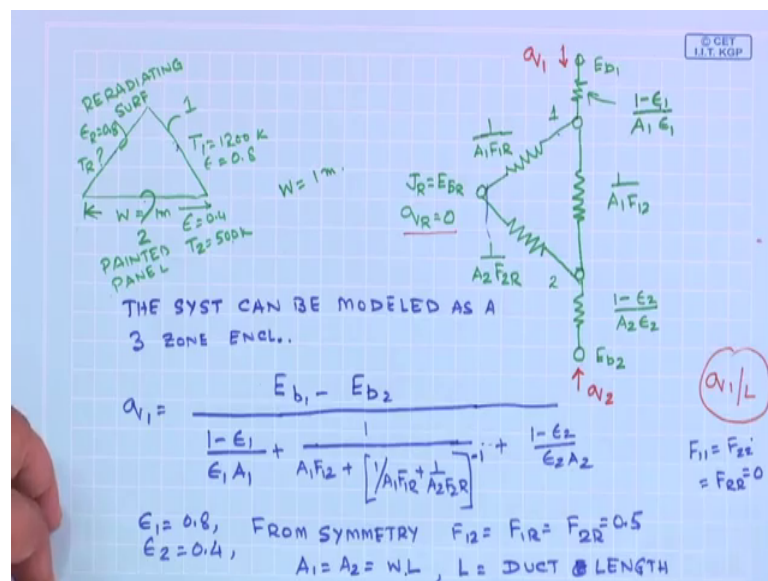 © CET
I.I.T. KGP
RERADIATING
SURF
ε_R=0.8
T_R?
1
T₁=1200 K
ε=0.8
W = 1 m
2
ε=0.4
T₂=500K
PAINTED
PANEL
W = 1 m.
q₁ ↓
E_b1
(1-ε₁)/(A₁ε₁)
1
1/(A₁F_1R)
J_R=E_bR
q_R=0
1/(A₁F₁₂)
1/(A₂F_2R)
2
(1-ε₂)/(A₂ε₂)
E_b2
↑ q₂
THE SYST CAN BE MODELED AS A
3 ZONE ENCL..
q₁ = (E_b₁ - E_b₂) / ((1-ε₁)/(ε₁A₁) + 1/(A₁F₁₂ + [1/A₁F_1R + 1/A₂F_2R]⁻¹) + (1-ε₂)/(ε₂A₂))
q₁/L
F₁₁ = F₂₂
= F_RR=0
ε₁=0.8, FROM SYMMETRY F₁₂ = F_1R = F_2R=0.5
ε₂=0.4, A₁=A₂=W.L, L= DUCT LENGTH